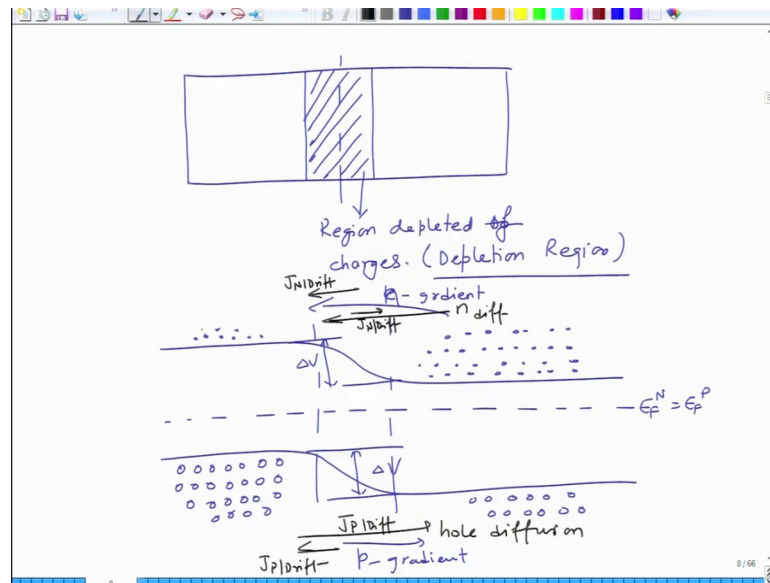 B I
Region depleted of
charges. (Depletion Region)
JN|Drift
n-grdient
JN|Diff
n diff
ΔV
ϵF^N = ϵF^P
ΔV
JP|Diff
hole diffusion
JP|Drift
p-gradient
8/66